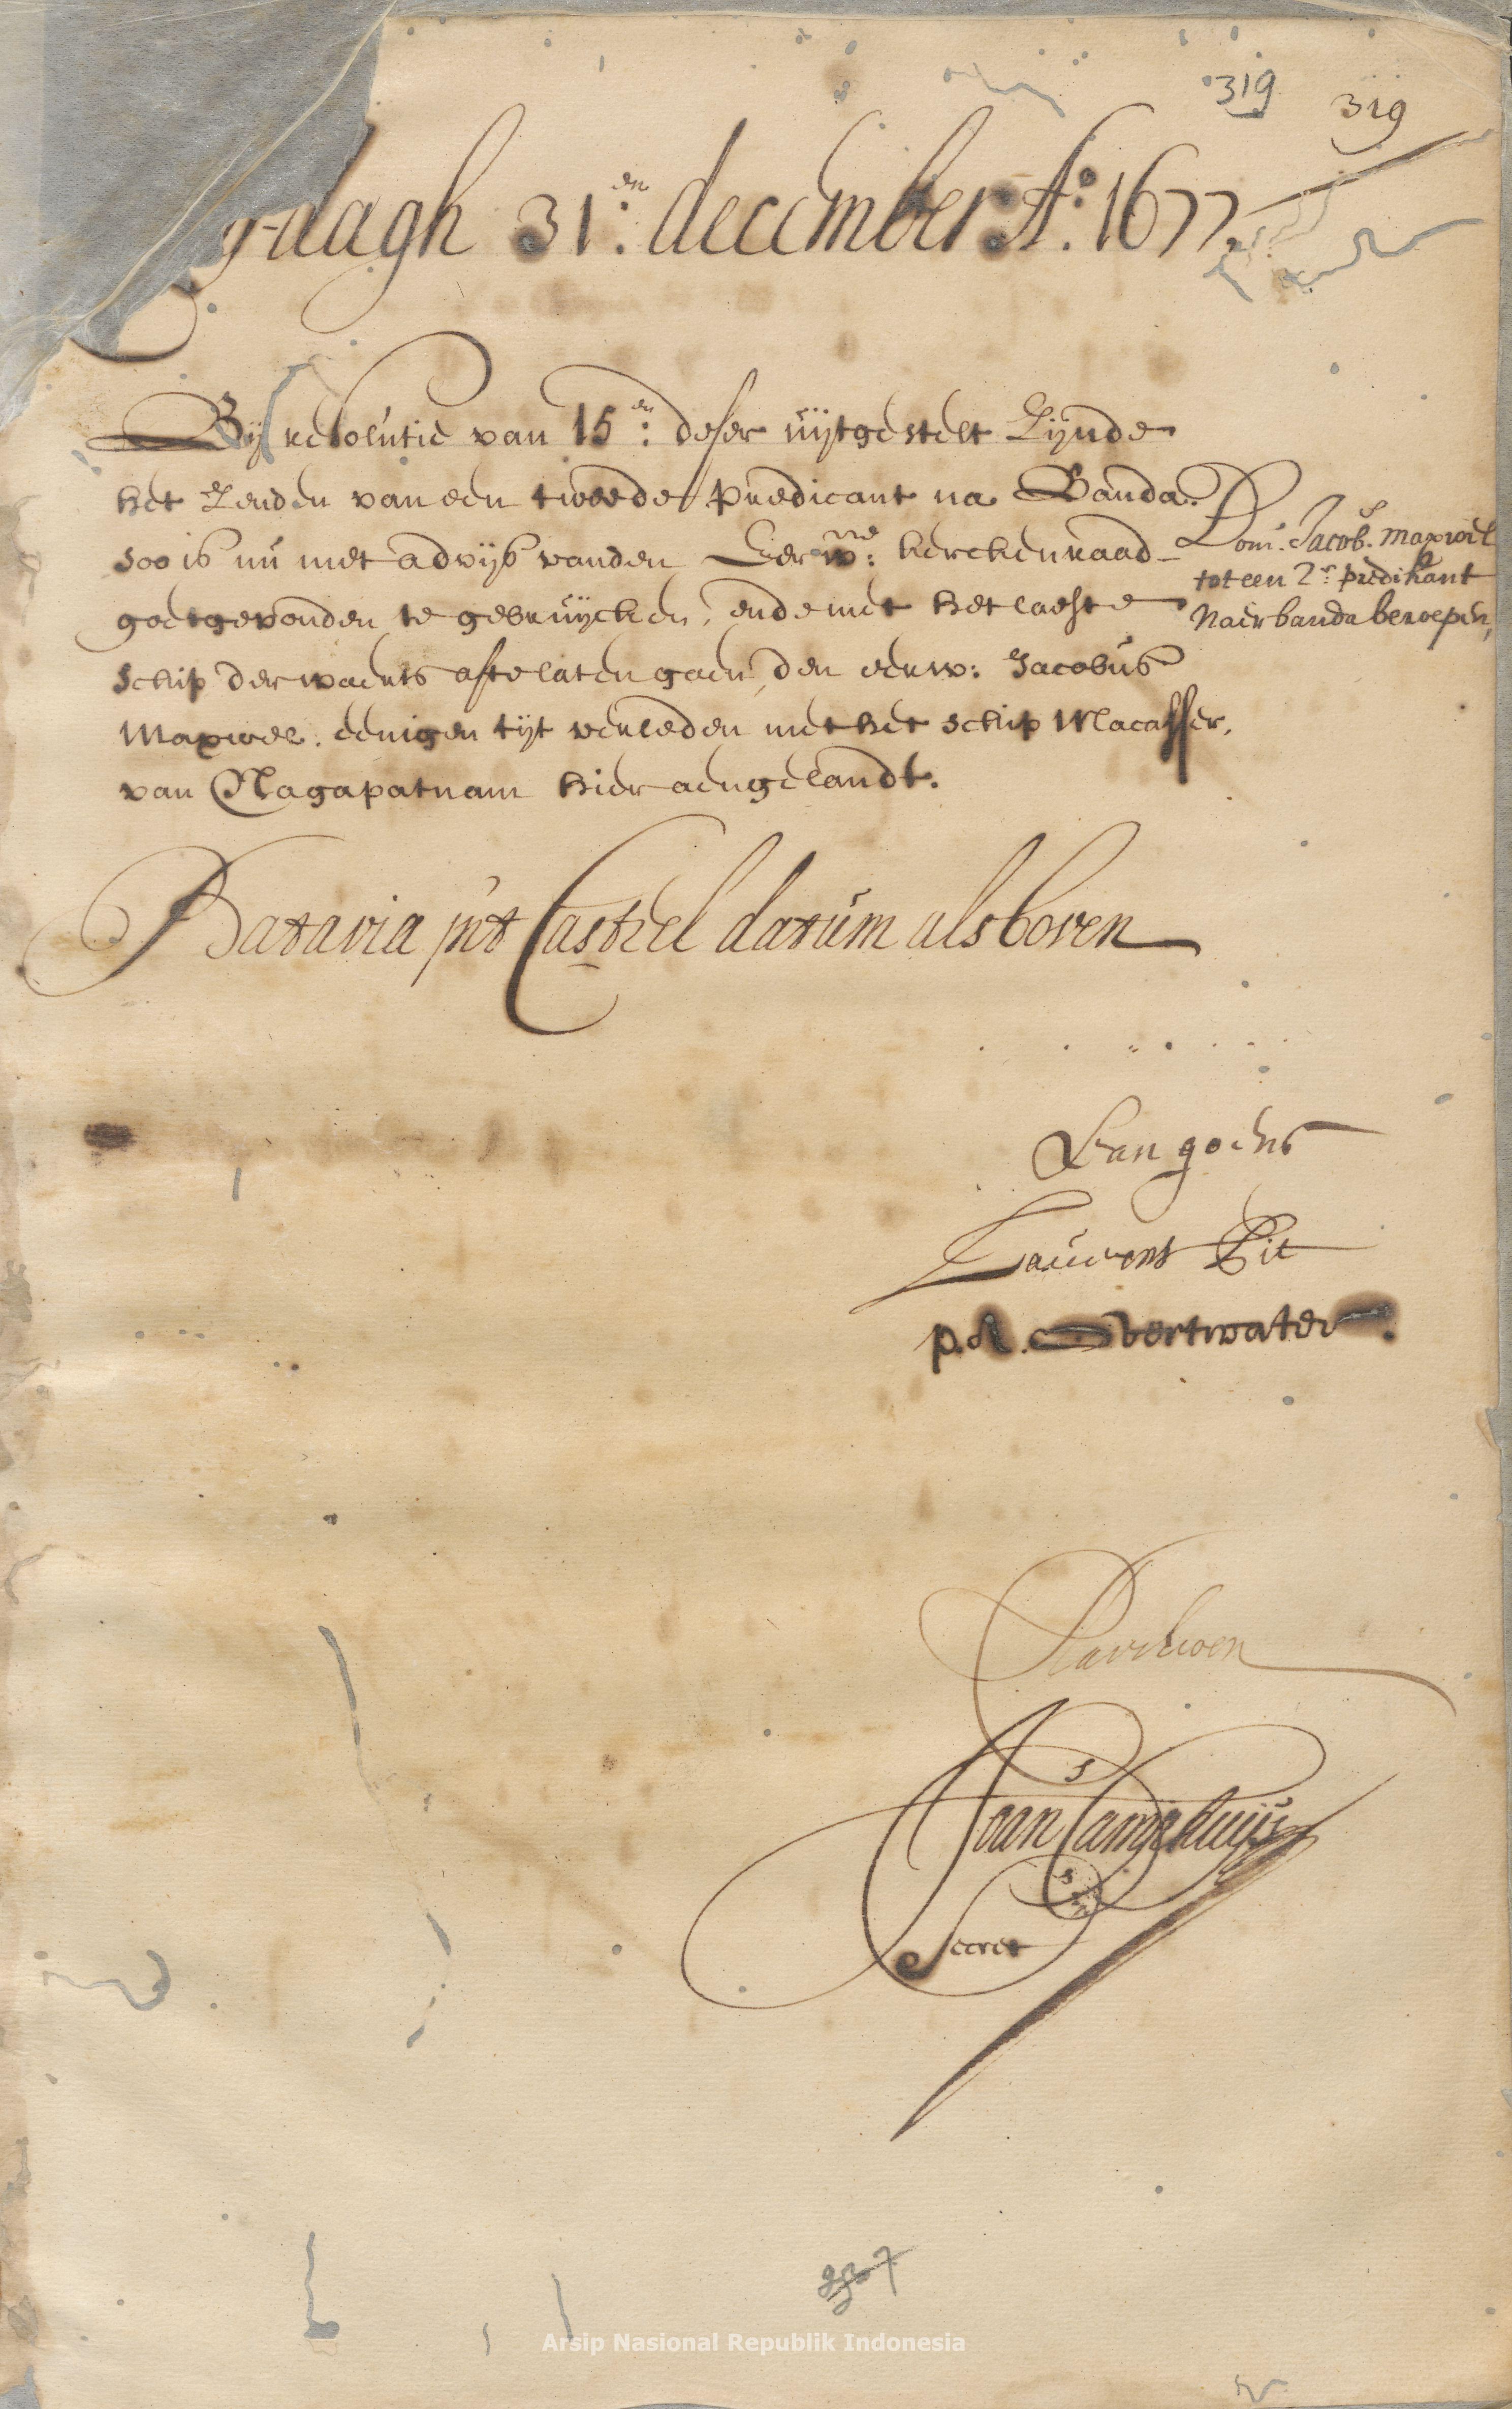 319 319
g-dagh 31:en december A:o 1677.
Bij resolutie van 15:en deser uijtgestelt Zijnde
het Zenden van een tweede predicant na Banda.
soo is nu met advijs vanden Eerw:ne kerckenraad
goetgevonden te gebruijcken, ende met het laeste
schip derwaerts afte laten gaen, den eerw: Jacobus
Maxwel. eenigen tijt verleden met het schip Macasser,
van Nagapatnam hier aengelandt.
Dom:s Jacob:s maxwel
tot een 2:e predikant
Naer banda beroepen,
Batavia int Casteel datum als boven
Van goens
Laurens Pit
p. A. Overtwater.
Joan Camphuijs
Secret
Arsip Nasional Republik Indonesia